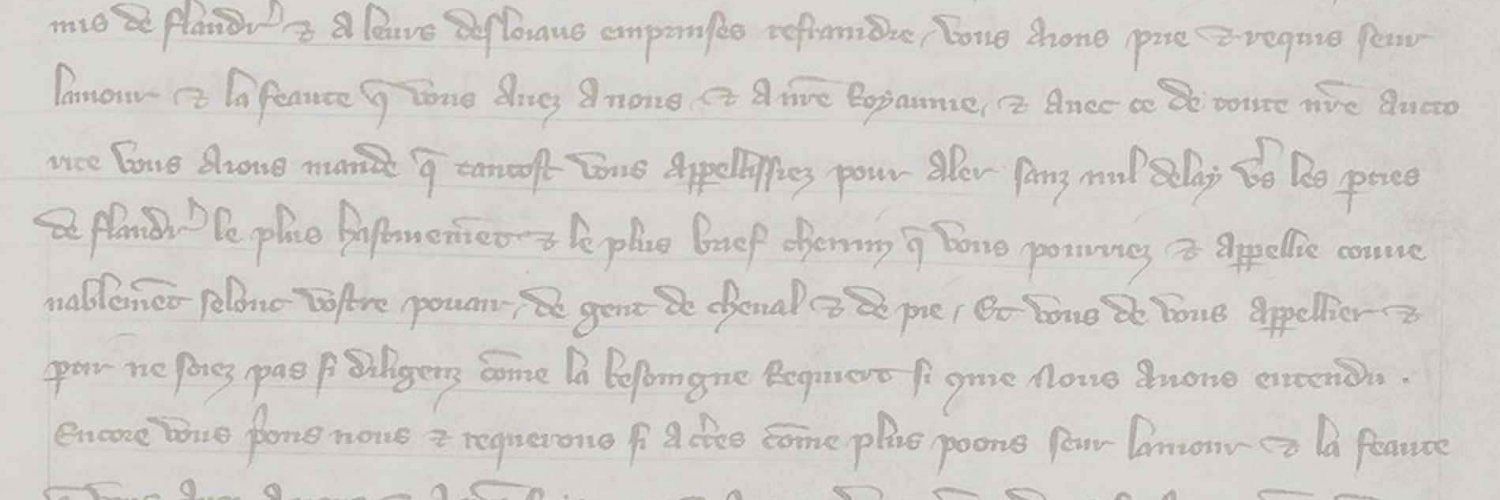 mis de flandr̄ ⁊ a leurs desloiaus emprinses refraindre, vous avons prie ⁊ requis seur
lamour ⁊ la feaute q̄ vous avez a nous ⁊ a nr̄e Royaume, ⁊ avec ce de toute nr̄e aucto
rite vous avons mande q̄ tantost vous appellissiez pour aler sanz nul delay vs̄ les pties
de flandr̄ le plus hastivemēt ⁊ le plus brief chemin q̄ vous pourriez ⁊ appellie conve
nablemēt selonc vostre pouair, de gent de cheval ⁊ de pie, Et vous de vous appellier ⁊
pour ne soiez pas si diligenz cōme la besoingne Requiert si que Nous avons entendu.
Encore vous prons nous ⁊ requerons si a crtes cōme plus poons seur lamour ⁊ la feaute